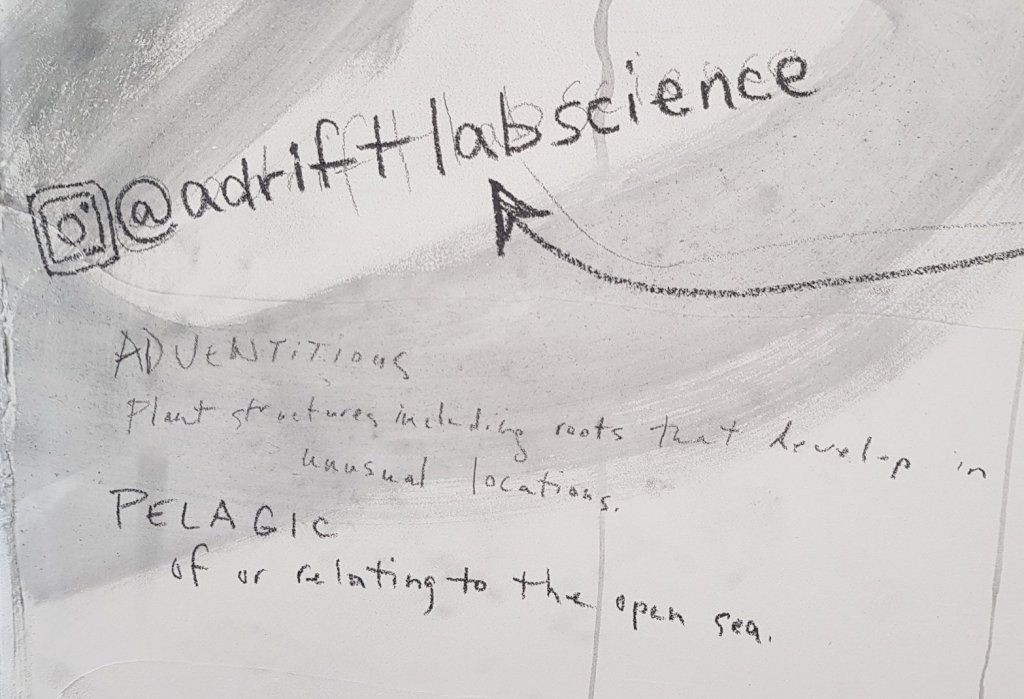 @adriftlabscience
ADVENTITIOUS
Plant structures including roots that develop in
unusual locations.
PELAGIC
of or relating to the open sea.